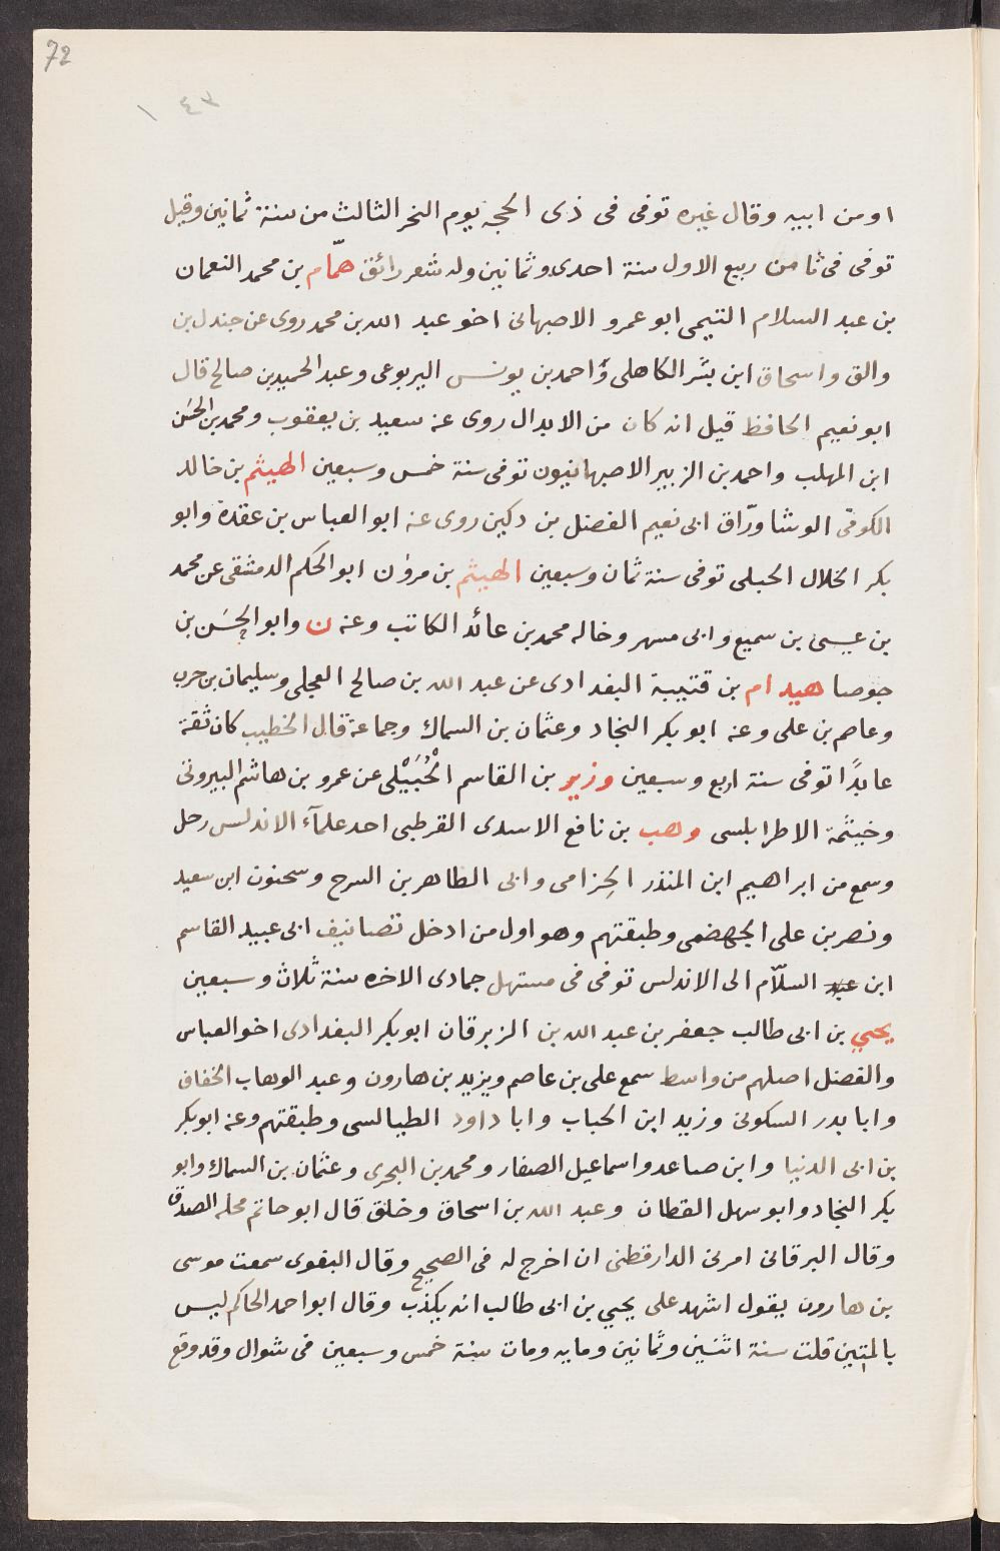 72
١ ٤٣
او من ابيه وقال غيره توفى فى ذى الحجه يوم النحر الثالث من سنة ثمانين وقيل
توفى فى ثامن ربيع الاول سنة احدى وثمانين وله شعر رائق همّام بن محمد النعمان
بن عبد السلام التيمى ابو عمرو الاصبهانى اخو عبد الله بن محمد روى عن جندل بن
والق واسحاق ابن بشر الكاهلى واحمد بن يونس اليربوعى وعبد الحميد بن صالح قال
ابو نعيم الحافظ قيل انه كان من الابدال روى عنه سعيد بن يعقوب ومحمد بن الحسن
ابن المهلب واحمد بن الزبير الاصبهانيون توفى سنة خمس وسبعين الهيثم بن خالد
الكوفى الوشا ورّاق ابى نعيم الفضل بن دكين روى عنه ابو العباس بن عقدة وابو
بكر الخلال الحبلى توفى سنة ثمان وسبعين الهيثم بن مروٰن ابو الحكم الدمشقى عن محمد
بن عيسى بن سميع وابى مسهر وخاله محمد بن عائد الكاتب وعنه ن وابو الحسن بن
جوصا هيدام بن قتيبة البغدادى عن عبد الله بن صالح العجلى وسليمان بن حرب
وعاصم بن على وعنه ابو بكر النجاد وعثمان بن السماك وجماعة قال الخطيب كان ثقة
عابدًا توفى سنة اربع وسبعين وزير بن القاسم الْحُبَيْلى عن عمرو بن هاشم البيروتى
وخيثمة الاطرابلسى وهب بن نافع الاسدى القرطبى احد علمآء الاندلس رحل
وسمع من ابراهيم ابن المنذر الحِزامى وابى الطاهر بن السرح وسحنون ابن سعيد
ونصر بن على الجهضمى وطبقتهم وهو اول من ادخل تصانيف ابى عبيد القاسم
ابن عبد السلاّم الى الاندلس توفى فى مستهل جمادى الاخره سنة ثلاث وسبعين
يحيي بن ابى طالب جعفر بن عبد الله بن الزبرقان ابو بكر البغدادى اخو العباس
والفضل اصلهم من واسط سمع على بن عاصم ويزيد بن هارون وعبد الوهاب الخفاف
وابا بدر السكونى وزيد ابن الحباب وابا داود الطيالسى وطبقتهم وعنه ابو بكر
بن ابى الدنيا وابن صاعد واسماعيل الصفار ومحمد بن البحرى وعثمان بن السماك وابو
بكر النجاد وابو سهل القطان وعبد الله بن اسحاق وخلق قال ابو حاتم محله الصدق
وقال البرقانى امرنى الدارقطنى ان اخرج له فى الصحيح وقال البغوى سمعت موسى
بن هارون يقول اشهد على يحيي بن ابى طالب انه يكذب وقال ابو احمد الحاكم ليس
بالمتين قلت سنة اثنين وثمانين ومايه ومات سنة خمس وسبعين فى شوال وقد وقع